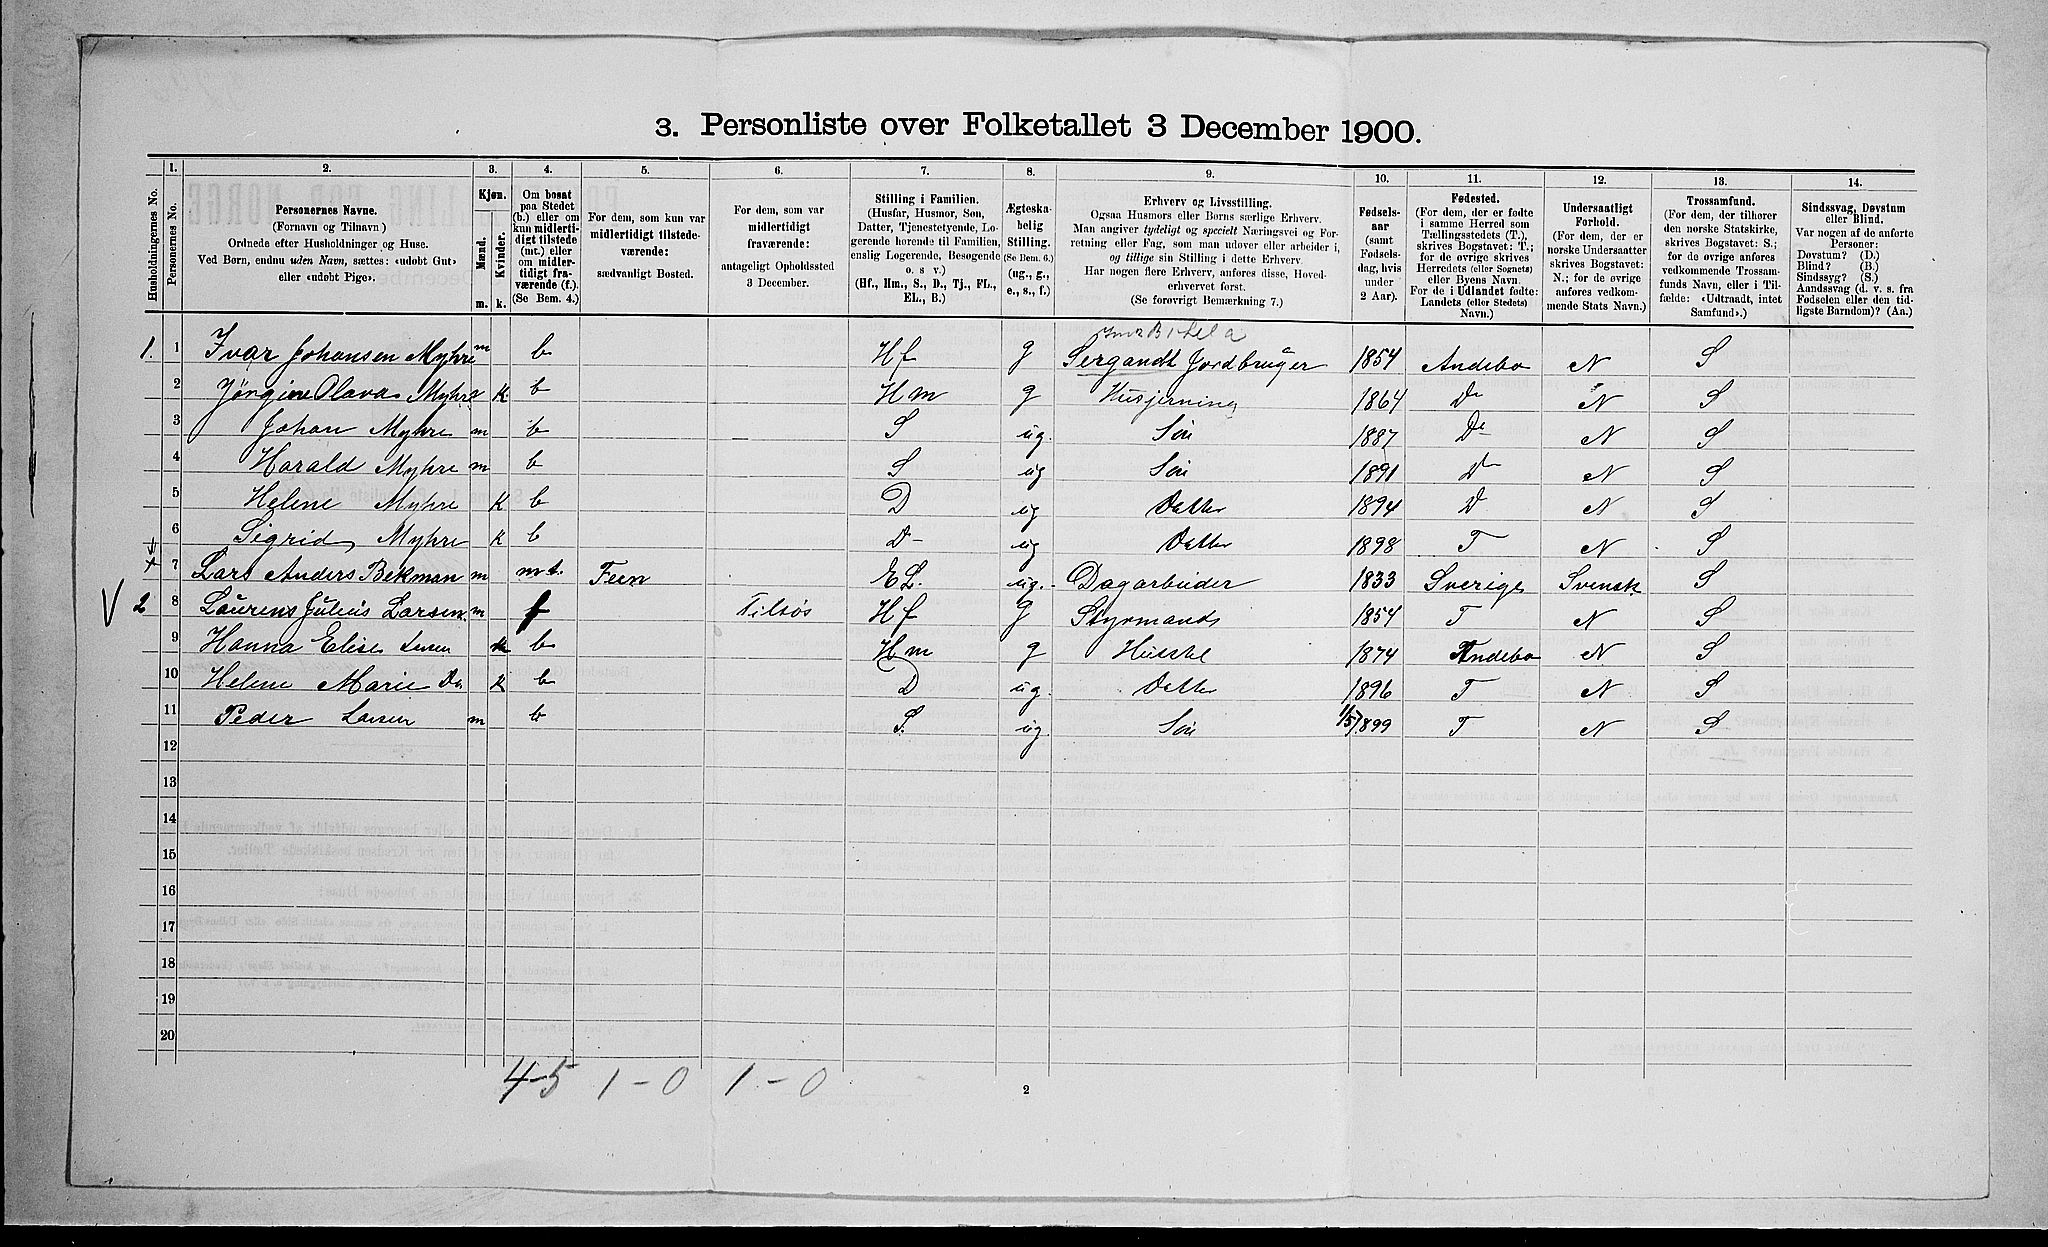 3. Personliste over Folketallet 3 December 1900.
Husholdningernes No.
1.
Personernes No.
2.
Personernes Navne.
(Fornavn og Tilnavn)
Ordnede efter Husholdninger og Huse.
Ved Børn, endnu uden Navn, sættes: «udøbt Gut»
eller «udøbt Pige».
3.
Kjøn.
Mænd.
Kvinder.
m.
k.
4.
Om bosat
paa Stedet
(b.) eller om
kun midlerti-
digt tilstede
(mt.) eller
om midler-
tidigt fra-
værende (f.).
(Se Bem. 4.)
5.
For dem, som kun var
midlertidigt tilstede-
værende:
sædvanligt Bosted.
6.
For dem, som var
midlertidigt
fraværende:
antageligt Opholdssted
3 December.
7.
Stilling i Familien.
(Husfar, Husmor, Søn,
Datter, Tjenestetyende, Lo-
gerende hørende til Familien,
enslig Logerende, Besøgende
o. s v.)
(Hf., Hm., S., D., Tj., FL.,
EL., B.)
8.
Ægteska-
belig
Stilling.
(Se Bem. 6.)
(ug., g.,
e., s., f.)
9.
Erhverv og Livsstilling.
Ogsaa Husmors eller Børns særlige Erhverv.
Man angiver tydeligt og specielt Næringsvei og For-
retning eller Fag, som man udøver eller arbeider i,
og tillige sin Stilling i dette Erhverv.
Har nogen flere Erhverv, anføres disse, Hoved-
erhvervet først.
(Se forøvrigt Bemærkning 7.)
10.
Fødsels-
aar
(samt
Fødsels-
dag, hvis
under
2 Aar).
11.
Fødested.
(For dem, der er fødte
i samme Herred som
Tællingsstedets (T.),
skrives Bogstavet: T.;
for de øvrige skrives
Herredets (eller Sognets)
eller Byens Navn.
For de i Udlandet fødte:
Landets (eller Stedets)
Navn.)
12.
Undersaatligt
Forhold.
(For dem, der er
norske Undersaatter
skrives Bogstavet:
N.; for de øvrige
anføres vedkom-
mende Stats Navn.)
13.
Trossamfund.
(For dem, der tilhører
den norske Statskirke,
skrives Bogstavet: S.;
for de øvrige anføres
vedkommende Trossam-
funds Navn, eller i Til-
fælde: «Udtraadt, intet
Samfund».)
14.
Sindssvag, Døvstum
eller Blind.
Var nogen af de anførte
Personer:
Døvstum? (D.)
Blind? (B.)
Sindssyg? (S.)
Aandssvag (d. v. s. fra
Fødselen eller den tid-
ligste Barndom)? (Aa.)
1. 1 Ivar Johansen Myhre m b Hf g Sergandt Jordbruger 1854 Andebo N S
2 Jørgine Olava Myhre K. b Hm g Husgjerning 1864 Do N S
3 Johan Myhre m b S ug. Søn 1887 Do N S
4 Harald Myhre m b S ug Søn 1891 Do N S
5 Helene Myhre K b D ug Datter 1894 D N S
6 Sigrid Myhre K b D ug Datter 1898 T N S
7 Lars Anders Bekman m mt. Feen EL. ug. Dagarbeider 1833 Sverige Svensk S
V 2 8 Laurens Julius Larsen m f Tilsøs Hf g Styrmand 1854 T N S
9 Hanna Elise Larsen k b Hm g 1874 Andebo N S
10 Helene Marie Do k b D ug. Datter 1896 T N S
11 Peder Larsen m b S. ug. Søn 11/5 1899 T N S
12
13
14
15
16
17
18
19
20
4-5 1-0 1-0
2